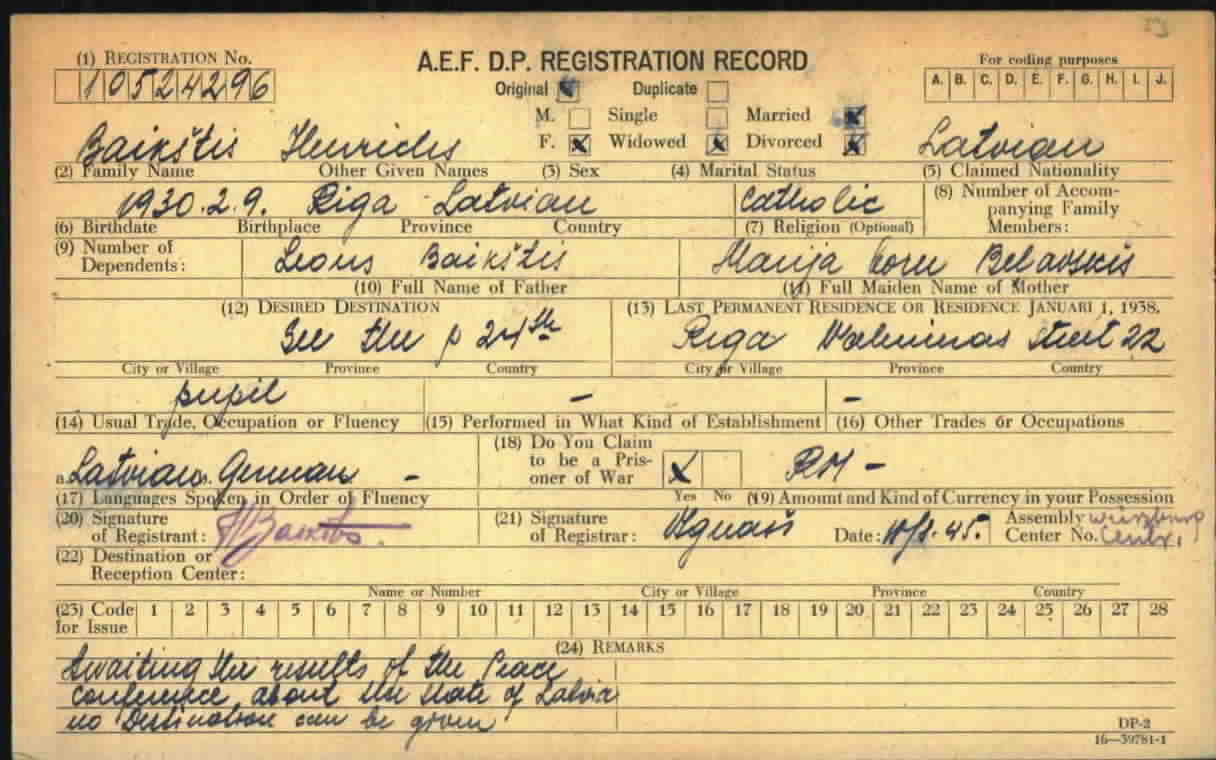 (1) REGISTRATION No.
A.E.F. D.P. REGISTRATION RECORD
For coding purposes
10524296
Original Duplicate
A. B. C. D. E. F. G. H. I. J.
M. Single Married
Baikštis Henrichs F. Widowed Divorced Latvian
(2) Family Name Other Given Names (3) Sex (4) Marital Status (5) Claimed Nationality
1930.2.9. Riga Latvian Catholic (8) Number of Accompanying Family Members:
(6) Birthdate Birthplace Province Country (7) Religion (Optional)
(9) Number of Dependents: Leons Baikštis Marija
(10) Full Name of Father (11) Full Maiden Name of Mother
(12) DESIRED DESTINATION (13) LAST PERMANENT RESIDENCE OR RESIDENCE JANUARI 1, 1938.
See the p 24th Riga Street 22
City or Village Province Country City or Village Province Country
pupil - -
(14) Usual Trade, Occupation or Fluency (15) Performed in What Kind of Establishment (16) Other Trades or Occupations
a. Latvian German - (18) Do You Claim to be a Prisoner of War RM -
(17) Languages Spoken in Order of Fluency Yes No (19) Amount and Kind of Currency in your Possession
(20) Signature of Registrant: (21) Signature of Registrar: Date: 45. Assembly Center No. Würzburg
(22) Destination or Reception Center:
Name or Number City or Village Province Country
(23) Code for Issue 1 2 3 4 5 6 7 8 9 10 11 12 13 14 15 16 17 18 19 20 21 22 23 24 25 26 27 28
(24) REMARKS
Awaiting the results of the Peace
conference about the state of Latvia
no Destination can be given
DP-2
16—39781-1